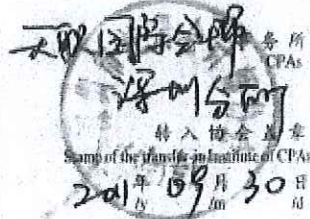 天职国际会师务所
CPAs
深圳分所
转入协会盖章
Stamp of the transfer-in Institute of CPAs
201 年 09 月 30 日
/y /m /d